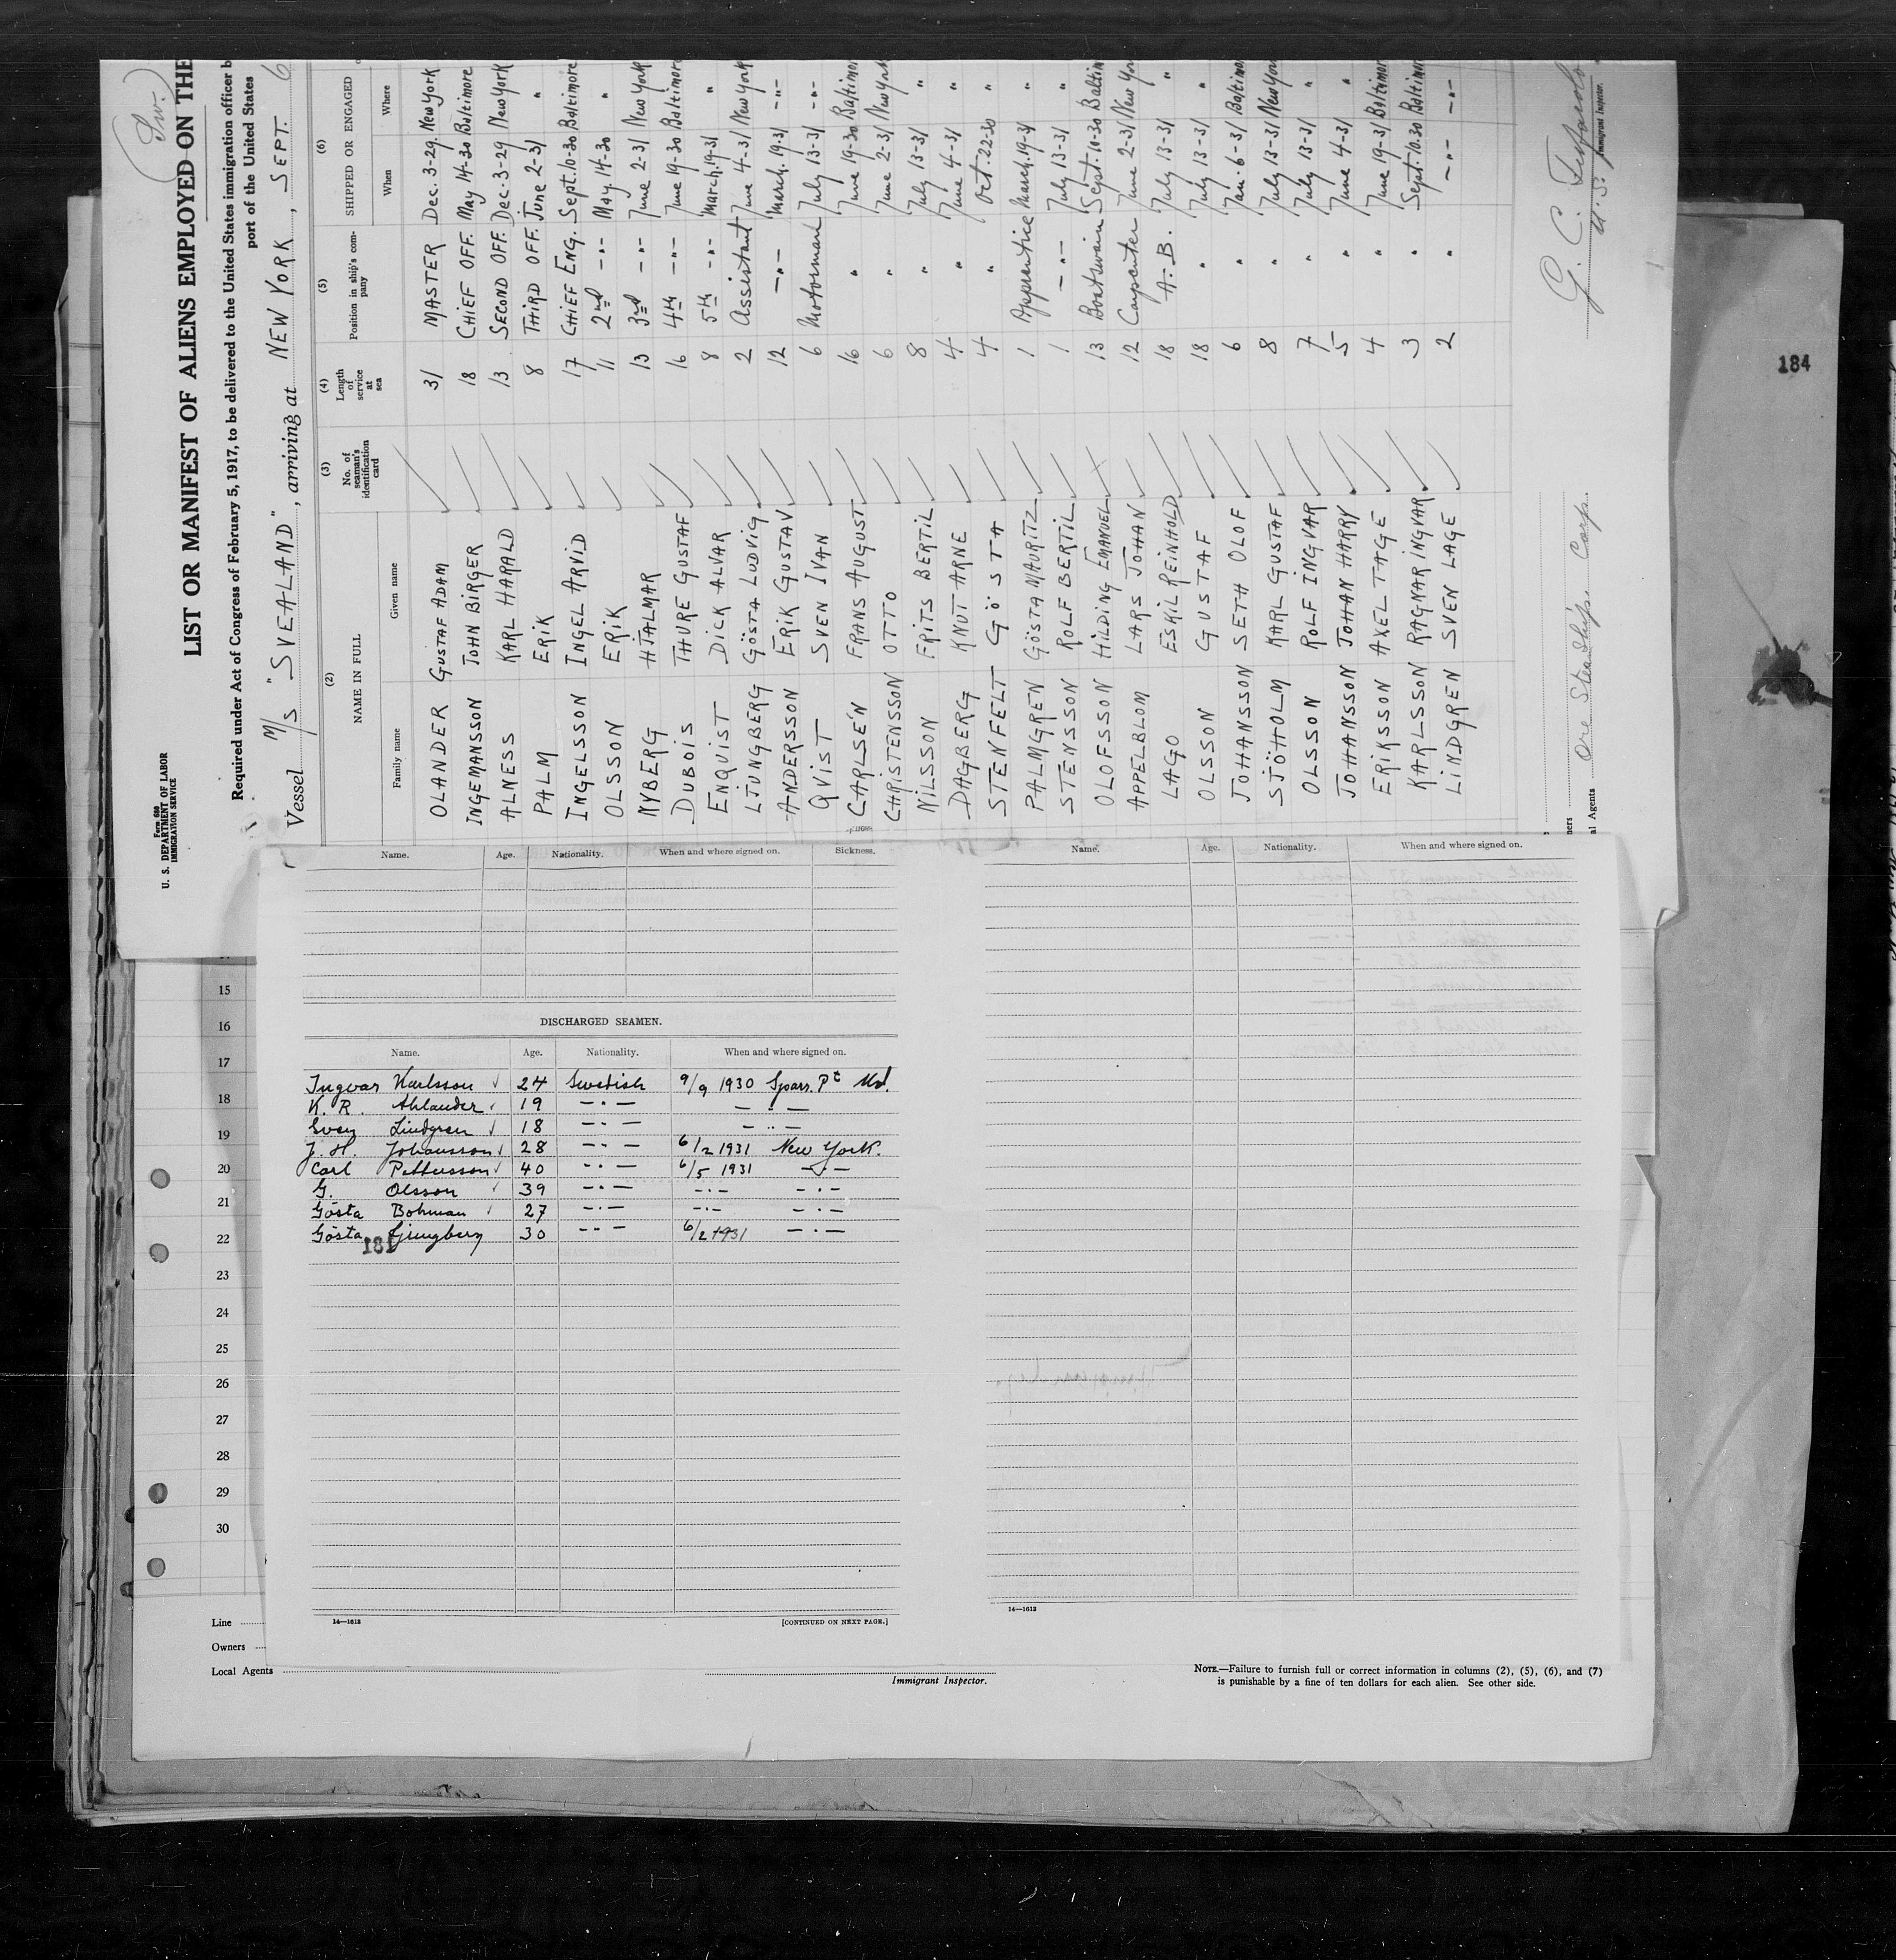 (Sw.)
LIST OR MANIFEST OF ALIENS EMPLOYED ON THE
Required under Act of Congress of February 5, 1917, to be delivered to the United States immigration officer b
port of the United States
Form 680
U. S. DEPARTMENT OF LABOR
IMMIGRATION SERVICE
Vessel M/S "SVEALAND", arriving at NEW YORK, SEPT. 6
(2) (3) (4) (5) (6)
NAME IN FULL No. of seaman's identification card Length of service at sea Position in ship's company SHIPPED OR ENGAGED
Family name Given name When Where
OLANDER GUSTAF ADAM 31 MASTER Dec. 3-29. New York
INGEMANSSON JOHN BIRGER 18 CHIEF OFF. May 14-30 Baltimore
ALNESS KARL HARALD 13 SECOND OFF. Dec. 3-29 New York
PALM ERIK 8 THIRD OFF. June 2-31 "
INGELSSON INGEL ARVID 17 CHIEF ENG. Sept. 10-30 Baltimore
OLSSON ERIK 11 2nd -"- May. 14-30 "
NYBERG HJALMAR 13 3rd -"- June 2-31 New York
DUBOIS THURE GUSTAF 16 4th -"- June 19-30 Baltimore
ENQUIST DICK ALVAR 8 5th -"- March. 19-31 "
LJUNGBERG GÖSTA LUDVIG 2 Assistant June 4-31 New York
ANDERSSON ERIK GUSTAV 12 -"- March. 19-31 -"-
QVIST SVEN IVAN 6 Motorman July 13-31 -"-
CARLSÉN FRANS AUGUST 16 " June 19-30 Baltimor
CHRISTENSSON OTTO 6 " June 2-31 New York
NILSSON FRITS BERTIL 8 " July 13-31 "
DAGBERG KNUT ARNE 4 " June 4-31 "
STENFELT GÖSTA 4 " Oct. 22-30 "
PALMGREN GÖSTA MAURITZ 1 Apprentice March. 19-31 "
STENSSON ROLF BERTIL 1 -"- July 13-31 "
OLOFSSON HILDING EMANUEL 13 Boatswain Sept. 10-30 Baltim
APPELBLOM LARS JOHAN 12 Carpenter June 2-31 New Yor
LAGO ESKIL REINHOLD 18 A.B. July 13-31 "
OLSSON GUSTAF 18 " July 13-31 "
JOHANSSON SETH OLOF 6 " Jan. 6-31 Baltimo
SJÖHOLM KARL GUSTAF 8 " July 13-31 New Yor
OLSSON ROLF INGVAR 7 " July 13-31 "
JOHANSSON JOHAN HARRY 5 " June 4-31 "
ERIKSSON AXEL TAGE 4 " June 19-31 Baltimor
KARLSSON RAGNAR INGVAR 3 " Sept. 10.30 Baltimor
LINDGREN SVEN LAGE 2 " -"- -"-
ners
al Agents Ore Steamship. Corp.
G. C.
U. S. Immigrant Inspector.
184
Name. Age. Nationality. When and where signed on. Sickness.
Name. Age. Nationality. When and where signed on.
DISCHARGED SEAMEN.
Name. Age. Nationality. When and where signed on.
Ingvar Karlsson 24 Swedish 9/9 1930 Sparr. Pt Md.
K. R. Ahlander 19 -"- -"-
Sven Lindgren 18 -"- -"-
J. H. Johansson 28 -"- 6/2 1931 New York.
Carl Pettersson 40 -"- 6/5 1931 -"-
G. Olsson 39 -"- -"- -"-
Gösta Bohman 27 -"- -"- -"-
Gösta Ljungberg 30 -"- 6/2 1931 -"-
181
15
16
17
18
19
20
21
22
23
24
25
26
27
28
29
30
14—1612 [CONTINUED ON NEXT PAGE.]
14—1612
Line
Owners
Local Agents
Immigrant Inspector.
NOTE.—Failure to furnish full or correct information in columns (2), (5), (6), and (7)
is punishable by a fine of ten dollars for each alien. See other side.